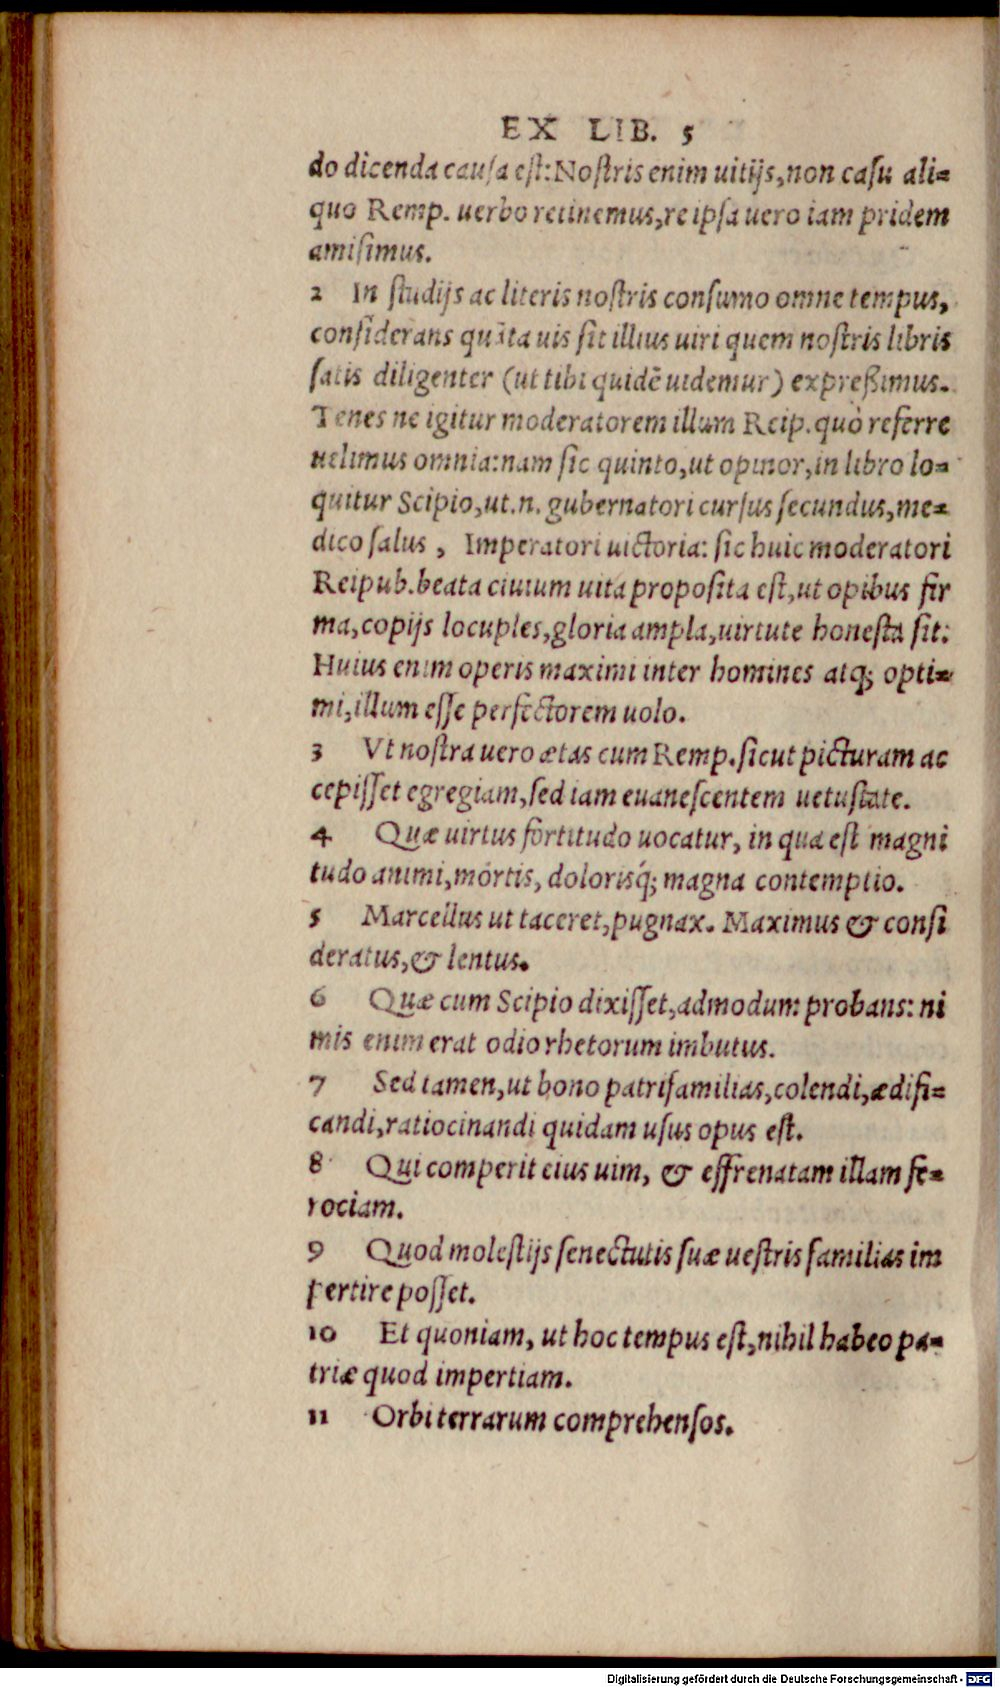 EX LIB. 5
do dicenda causa est: Nostris enim uitijs, non casu ali=
quo Remp. uerbo retinemus, re ipsa uero iam pridem
amisimus.
2 In studijs ac literis nostris consumo omne tempus,
considerans quāta uis sit illius uiri quem nostris libris
satis diligenter (ut tibi quidē uidemur) expreßimus.
Tenes ne igitur moderatorem illum Reip. quò referre
uelimus omnia: nam sic quinto, ut opinor, in libro lo=
quitur Scipio, ut. n. gubernatori cursus secundus, me=
dico salus, Imperatori uictoria: sic huic moderatori
Reipub. beata ciuium uita proposita est, ut opibus fir
ma, copijs locuples, gloria ampla, uirtute honesta sit:
Huius enim operis maximi inter homines atq; opti=
mi, illum esse perfectorem uolo.
3 Vt nostra uero ætas cum Remp. sicut picturam ac
cepisset egregiam, sed iam euanescentem uetustate.
4 Quæ uirtus fortitudo uocatur, in qua est magni
tudo animi, mortis, dolorisq́; magna contemptio.
5 Marcellus ut taceret, pugnax. Maximus & consi
deratus, & lentus.
6 Quæ cum Scipio dixisset, admodum probans: ni
mis enim erat odio rhetorum imbutus.
7 Sed tamen, ut bono patrifamilias, colendi, ædifi=
candi, ratiocinandi quidam usus opus est.
8 Qui comperit eius uim, & effrenatam illam fe=
rociam.
9 Quod molestijs senectutis suæ uestris familias im
pertire posset.
10 Et quoniam, ut hoc tempus est, nihil habeo pa=
triæ quod impertiam.
11 Orbi terrarum comprehensos.
Digitalisierung gefördert durch die Deutsche Forschungsgemeinschaft - DFG